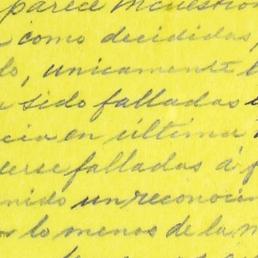 parece incuestion
como decididas,
lo, unicamente l
sido falladas
cia en última
erse falladas á f
nido un reconoci
lo menos de la m